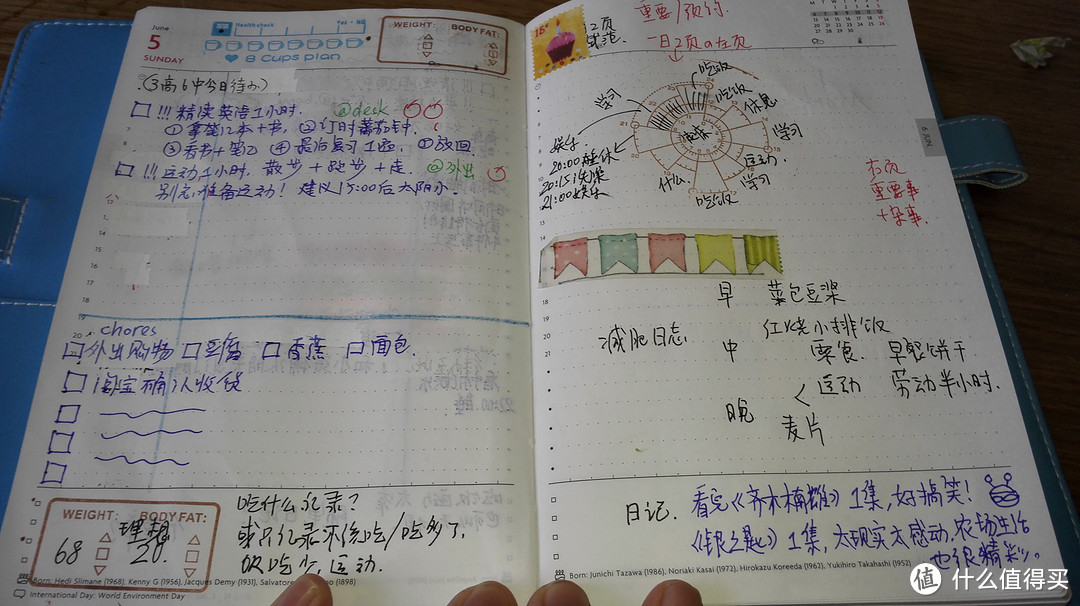 June
5
SUNDAY
Health check
Yes・No
8 cups plan
WEIGHT:
BODY FAT:
(3高6中今日待办)
!!! 精读英语1小时. @deck
① 拿笔记本+书, ② 订时番茄钟.
③ 看书+笔记 ④ 最后复习1题, 放回
!!! 运动1小时. 散步+跑步+走 @外出
别忘准备运动! 建议15:00后太阳小.
chores
外出购物 豆腐 香蕉 面包.
淘宝确认收货
WEIGHT:
BODY FAT:
理想
68
20.
吃什么记录?
或只记录不该吃/吃多了
吸吃少, 运动.
Born: Hedi Slimane (1968), Kenny G (1956), Jacques Demy (1931), Salvatore (1898)
International Day: World Environment Day
12页
重要/预约.
一日2页の左页
吃饭
学习
吃饭
休息
学习
运动.
学习
吃饭
什么.
娱乐
20:00
20:15洗澡
21:00娱乐
右页
重要事
+杂事.
6 JUN
早 菜包豆浆
减肥日志
中 红烧小排饭
零食. 早餐饼干
晚 < 运动 劳动半小时.
麦片
日记. 看完《齐木楠雄》1集, 好搞笑!
《银之匙》1集, 太现实太感动, 农场生活
也很精彩。
Born: Junichi Tazawa (1986), Noriaki Kasai (1972), Hirokazu Koreeda (1962), Yukihiro Takahashi (1952)
值 什么值得买